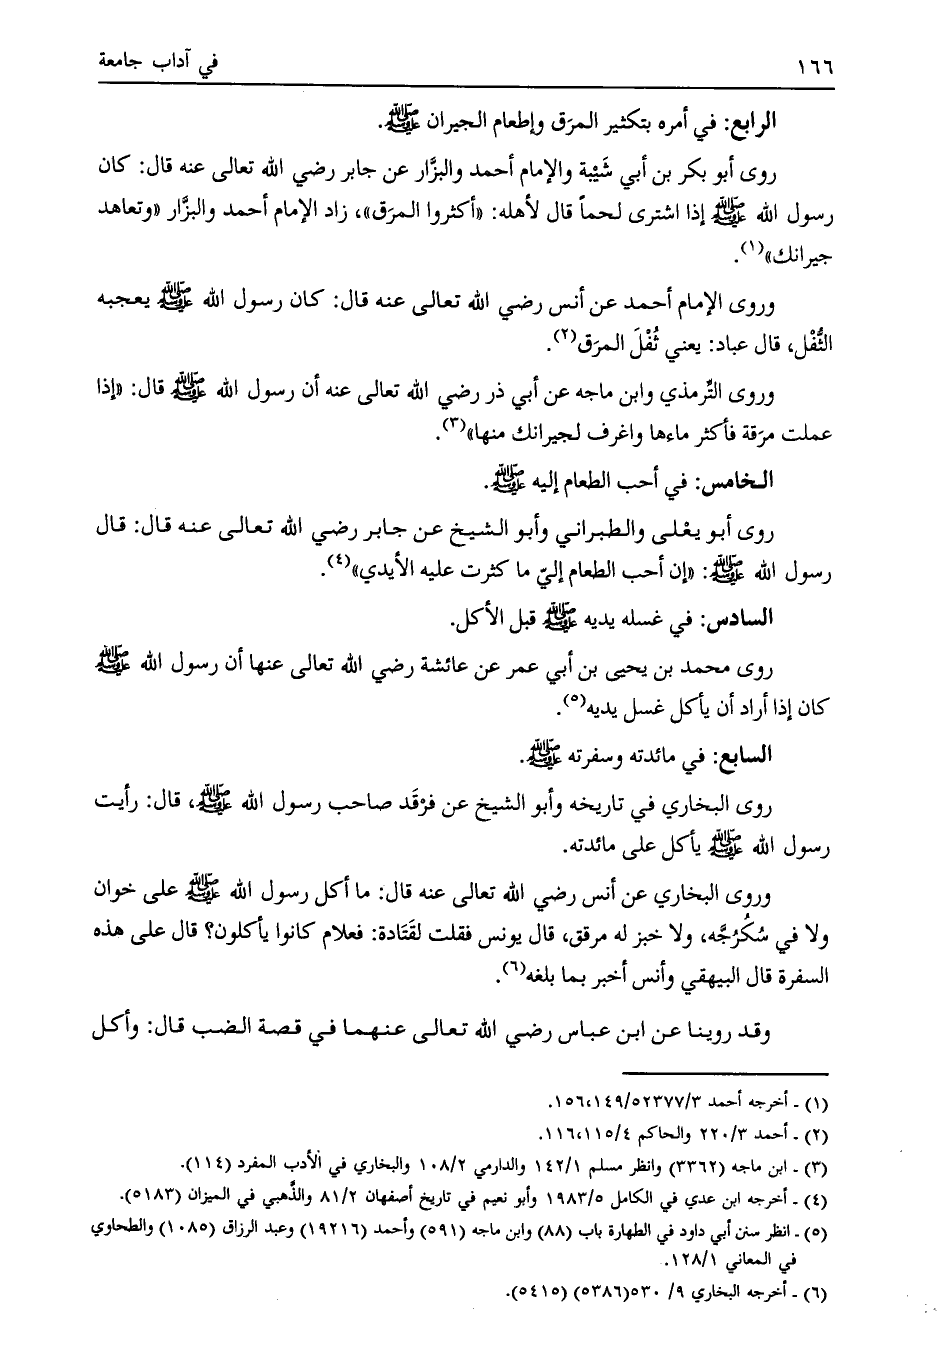 ١٦٦ في آداب جامعة
الرابع: في أمره بتكثير المرَق وإطعام الجيران ﷺ.
روى أبو بكر بن أبي شَيْبة والإمام أحمد والبزَّار عن جابر رضي الله تعالى عنه قال: كان
رسول الله ﷺ إذا اشترى لحماً قال لأهله: «أكثروا المرَق»، زاد الإمام أحمد والبزَّار «وتعاهد
جيرانك»(١).
وروى الإمام أحمد عن أنس رضي الله تعالى عنه قال: كان رسول الله ﷺ يعجبه
الثُّفْل، قال عباد: يعني ثُفْلَ المرَق(٢).
وروى التِّرمذي وابن ماجه عن أبي ذر رضي الله تعالى عنه أن رسول الله ﷺ قال: «إذا
عملت مرَقة فأكثر ماءها واغرف لجيرانك منها»(٣).
الخامس: في أحب الطعام إليه ﷺ.
روى أبو يعْلى والطبراني وأبو الشيخ عن جابر رضي الله تعالى عنه قال: قال
رسول الله ﷺ: «إن أحب الطعام إليّ ما كثرت عليه الأيدي»(٤).
السادس: في غسله يديه ﷺ قبل الأكل.
روى محمد بن يحيى بن أبي عمر عن عائشة رضي الله تعالى عنها أن رسول الله ﷺ
كان إذا أراد أن يأكل غسل يديه(٥).
السابع: في مائدته وسفرته ﷺ.
روى البخاري في تاريخه وأبو الشيخ عن فرْقَد صاحب رسول الله ﷺ، قال: رأيت
رسول الله ﷺ يأكل على مائدته.
وروى البخاري عن أنس رضي الله تعالى عنه قال: ما أكل رسول الله ﷺ على خوان
ولا في سُكُرُجَّه، ولا خبز له مرقق، قال يونس فقلت لقَتَادة: فعلام كانوا يأكلون؟ قال على هذه
السفرة قال البيهقي وأنس أخبر بما بلغه(٦).
وقد روينا عن ابن عباس رضي الله تعالى عنهما في قصة الضب قال: وأكل
(١) ـ أخرجه أحمد ٥٢٣٧٧/٣/١٥٦،١٤٩.
(٢) ـ أحمد ٢٢٠/٣ والحاكم ١١٦،١١٥/٤.
(٣) ـ ابن ماجه (٣٣٦٢) وانظر مسلم ١٤٢/١ والدارمي ١٠٨/٢ والبخاري في الأدب المفرد (١١٤).
(٤) ـ أخرجه ابن عدي في الكامل ١٩٨٣/٥ وأبو نعيم في تاريخ أصفهان ٨١/٢ والذَّهبي في الميزان (٥١٨٣).
(٥) ـ انظر سنن أبي داود في الطهارة باب (٨٨) وابن ماجه (٥٩١) وأحمد (١٩٢١٦) وعبد الرزاق (١٠٨٥) والطحاوي
في المعاني ١٢٨/١.
(٦) ـ أخرجه البخاري ٩/ ٥٣٠(٥٣٨٦) (٥٤١٥).